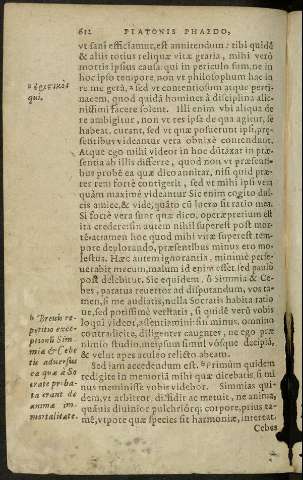 612 PLATONIS PHAEDO,
vt sani efficiamur, est annitendum: tibi quidē
& aliis totius reliquæ vitæ gratia, mihi verò
mortis ipsius causa. qui in periculo sum, ne in
hoc ipso tempore, non vt philosophum hac in
re me gerā, a sed vt contentiosum atque perti-
nacem, quod quidā homines à disciplina alie-
nissimi facere solent. Illi enim vbi aliqua de
re ambigitur, non vt res ipsa de qua agitur, se
habeat, curant, sed vt quæ posuerunt ipsi, præ-
sentibus videantur vera obnixè contendunt.
Atque ego mihi videor in hoc dūtaxat in præ-
sentia ab illis differre, quod non vt præsenti-
bus probē ea quæ dico annitar, nisi quid præ-
ter rem fortè contigerit, sed vt mihi ipsi vera
quàm maximè videantur. Sic enim cogito dul-
cis amice, & vide, quāto cū lucro sit ratio mea.
Si fortè vera sunt quæ dico, operæpretium est
ita credere: sin autem nihil superest post mor-
tē: attamen hoc quod mihi vitæ superest tem-
pore deplorando, præsentibus minus ero mo-
lestus. Hæc autem ignorantia, minimè perse-
uerabit mecum, malum id enim esset. sed paulò
pòst delebitur. Sic equidem, ô Simmia & Ce-
bes, paratus reuertor ad disputandum, vos ta-
men, si me audiatis, nulla Socratis habita ratio
ne, sed potissimè veritatis, si quidē verū vobis
loqui videor, assentiamini: sin minus, omnino
contradicite, diligenter cauentes, ne ego præ
nimio studio, meipsum simul vósque decipiā,
& velut apes aculeo relicto abeam.
Sed iam accedendum est. b Primùm quidem
redigite in memoriā mihi quæ dicebatis, si mi
nus meminisse vobis videbor. Simmias qui-
dem, vt arbitror diffidit ac metuit, ne anima,
quāuis diuinior pulchriórq; corpore, prius ta-
mē, vtpote quæ species sit harmoniæ, intereat.
Cebes
qui.
b Breuis re-
petitio exce-
ptionū Sim-
miæ & Cebe
tis aduersus
ea quæ à So
crate proba-
ta erant de
animæ im-
mortalitate.